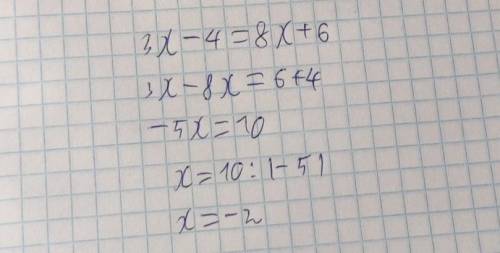 3x-4=8x+6
3x-8x=6+4
-5x=10
x=10:(-5)
x=-2